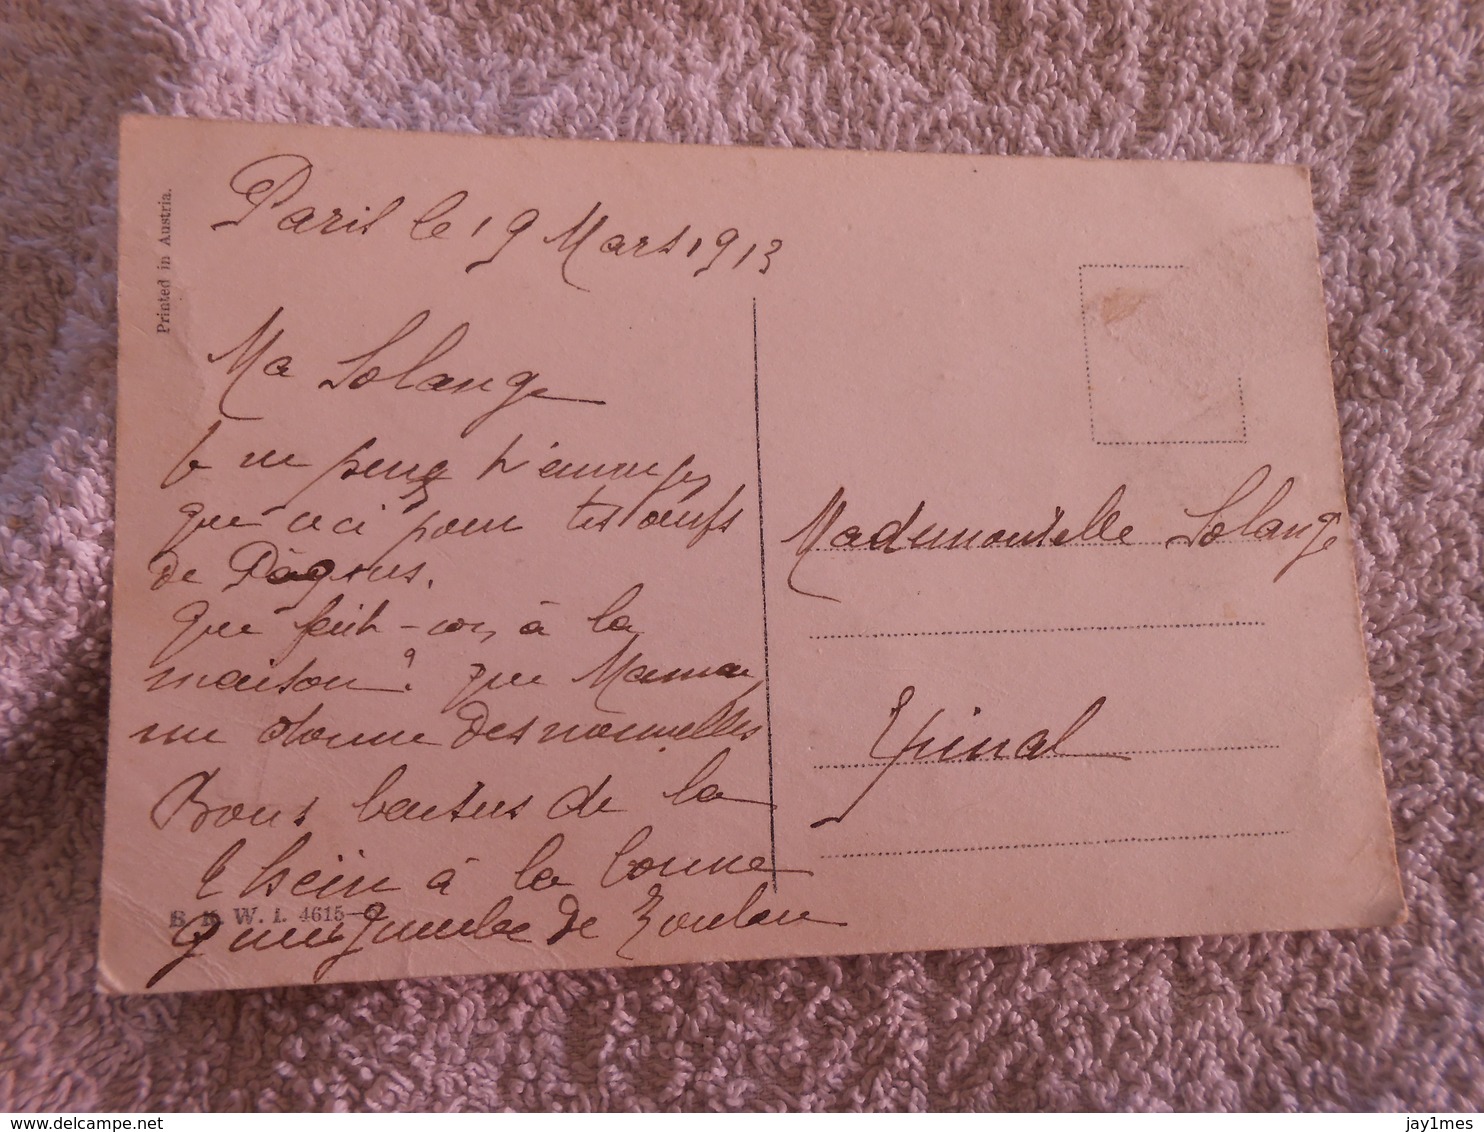 Printed in Austria.
Paris le 19 Mars 1913
Ma Solange
Je ne peux t'envoyer
que ceci pour tes œufs
de Pâques.
Que fait-on à la
maison? que Maman
me donne des nouvelles
Bons baisers de la
à la bonne
de
B. K. W. I. 4615
Mademoiselle Solange
Epinal
delcampe.net
jay1mes